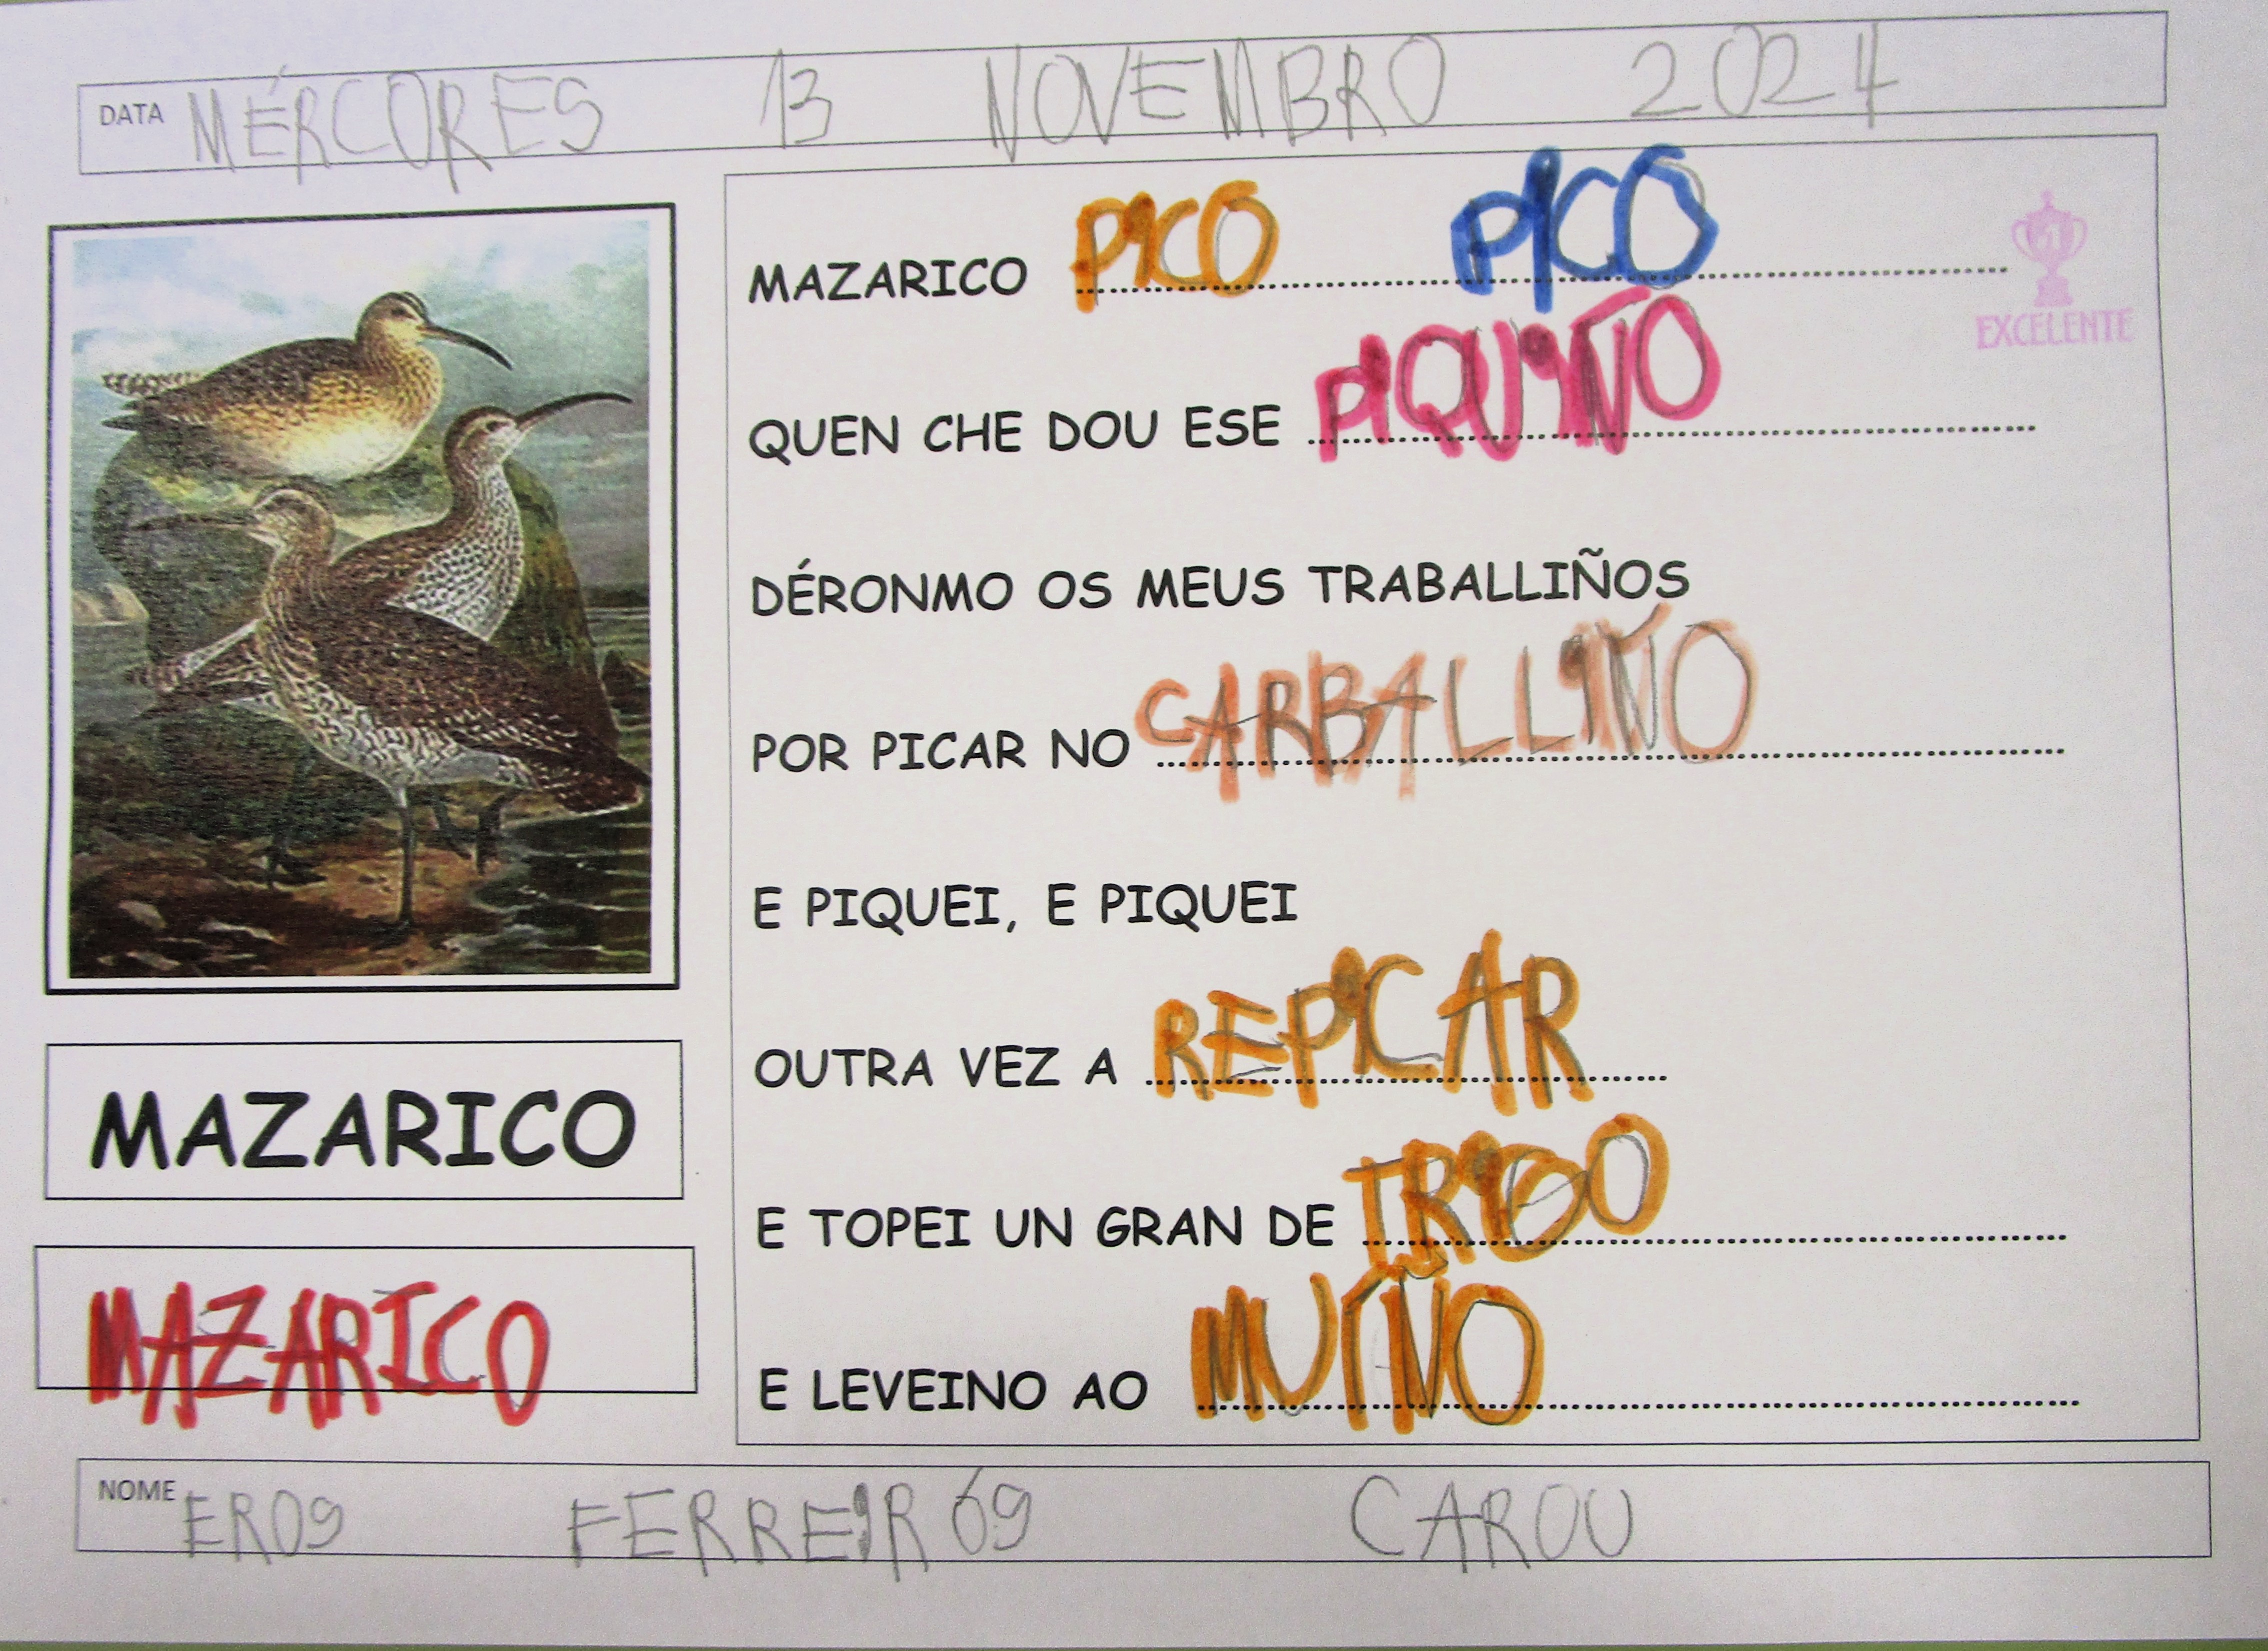 DATA MÉRCORES 13 NOVEMBRO 2024
MAZARICO PICO PICO
EXCELENTE
QUEN CHE DOU ESE PIQUIÑO
DÉRONMO OS MEUS TRABALLIÑOS
POR PICAR NO CARBALLIÑO
E PIQUEI, E PIQUEI
OUTRA VEZ A REPICAR
E TOPEI UN GRAN DE TRIGO
E LEVEINO AO MUÍÑO
MAZARICO
MAZARICO
NOME EROS FERREIRÓS CAROU